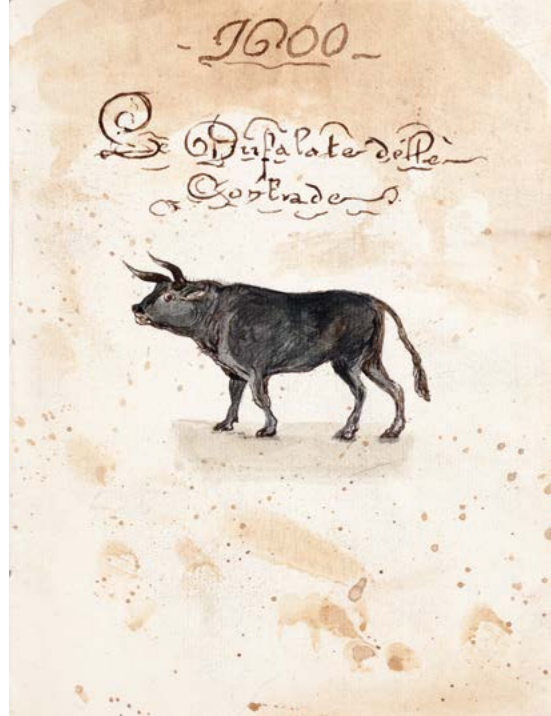 - 1600 -
Le Bufalate delle
Contrade